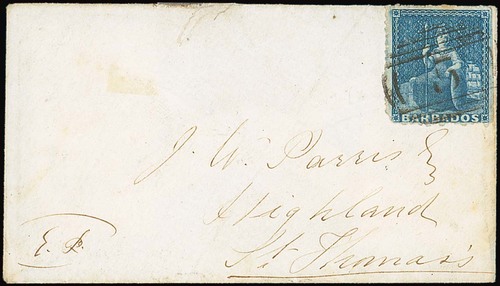 BARBADOS
J. W. Parris Esq
Highland
St Thomas's
E. P.